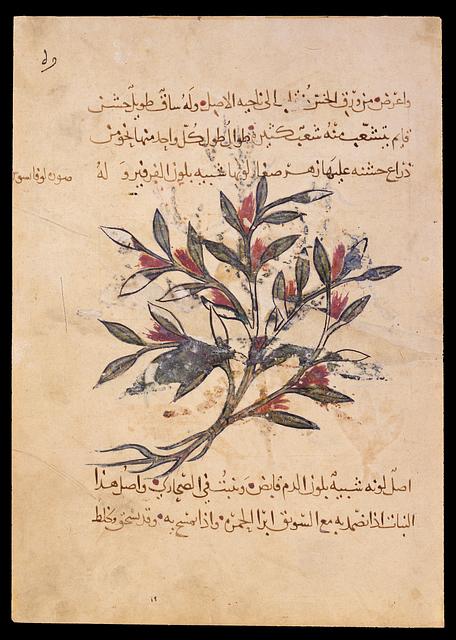 واعرض من ورق الخس الى ناحيه الاصل وله ساق طويل خشن
قايم يتشعب منه شعب كثيره طوال طول كل واحد منها نحو من
ذراع خشنه عليها زهر صغار لونها شبيه بلون الفرفير وله
صوره
اصل لونه شبيه بلون الدم قابض وينبت في الصحارى واصل هذا
النبات اذا تضمد به مع السويق ابرا الحمره واذا تمسح به وقد سحق وخلط